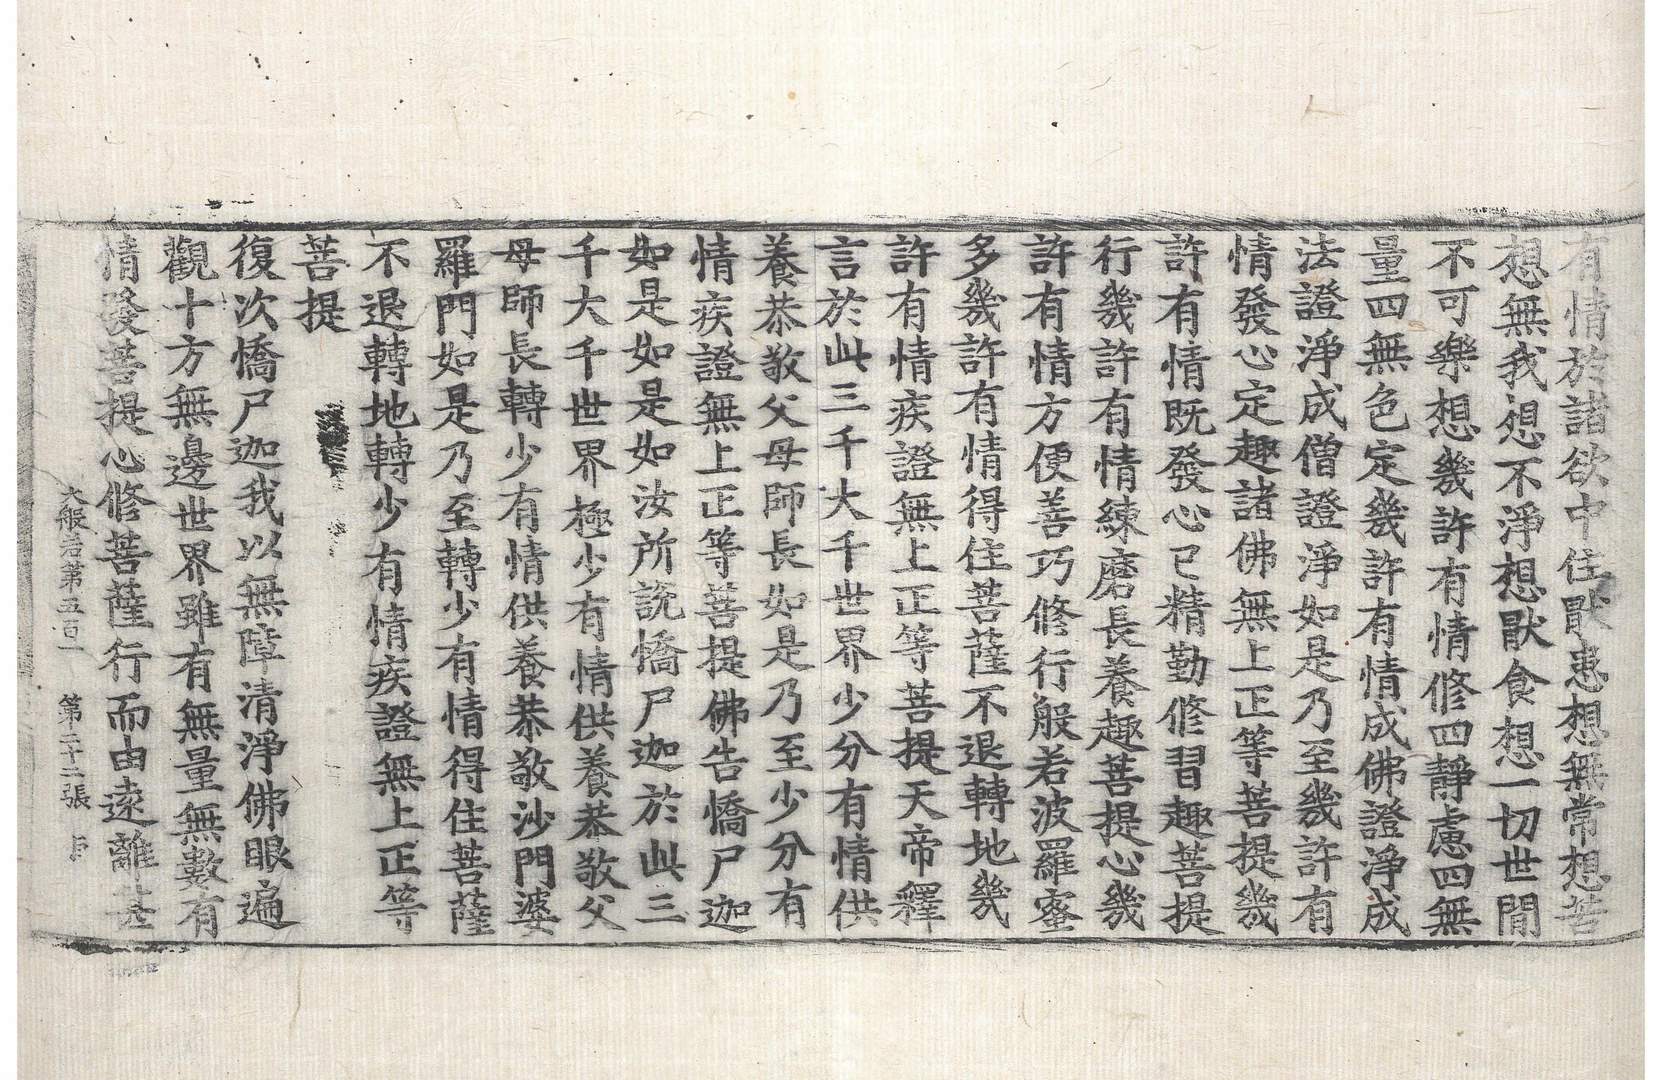 有情於諸欲中住猒患想無常想苦
想無我想不淨想猒食想一切世間
不可樂想幾許有情修四靜慮四無
量四無色定幾許有情成佛證淨成
法證淨成僧證淨如是乃至幾許有
情發心定趣諸佛無上正等菩提幾
許有情既發心已精勤修習趣菩提
行幾許有情練磨長養趣菩提心幾
許有情方便善巧修行般若波羅蜜
多幾許有情得住菩薩不退轉地幾
許有情疾證無上正等菩提天帝釋
言於此三千大千世界少分有情供
養恭敬父母師長如是乃至少分有
情疾證無上正等菩提佛告憍尸迦
如是如是如汝所說憍尸迦於此三
千大千世界極少有情供養恭敬父
母師長轉少有情供養恭敬沙門婆
羅門如是乃至轉少有情得住菩薩
不退轉地轉少有情疾證無上正等
菩提
復次憍尸迦我以無障清淨佛眼遍
觀十方無邊世界雖有無量無數有
情發菩提心修菩薩行而由遠離甚
大般若第五百一 第二十二張